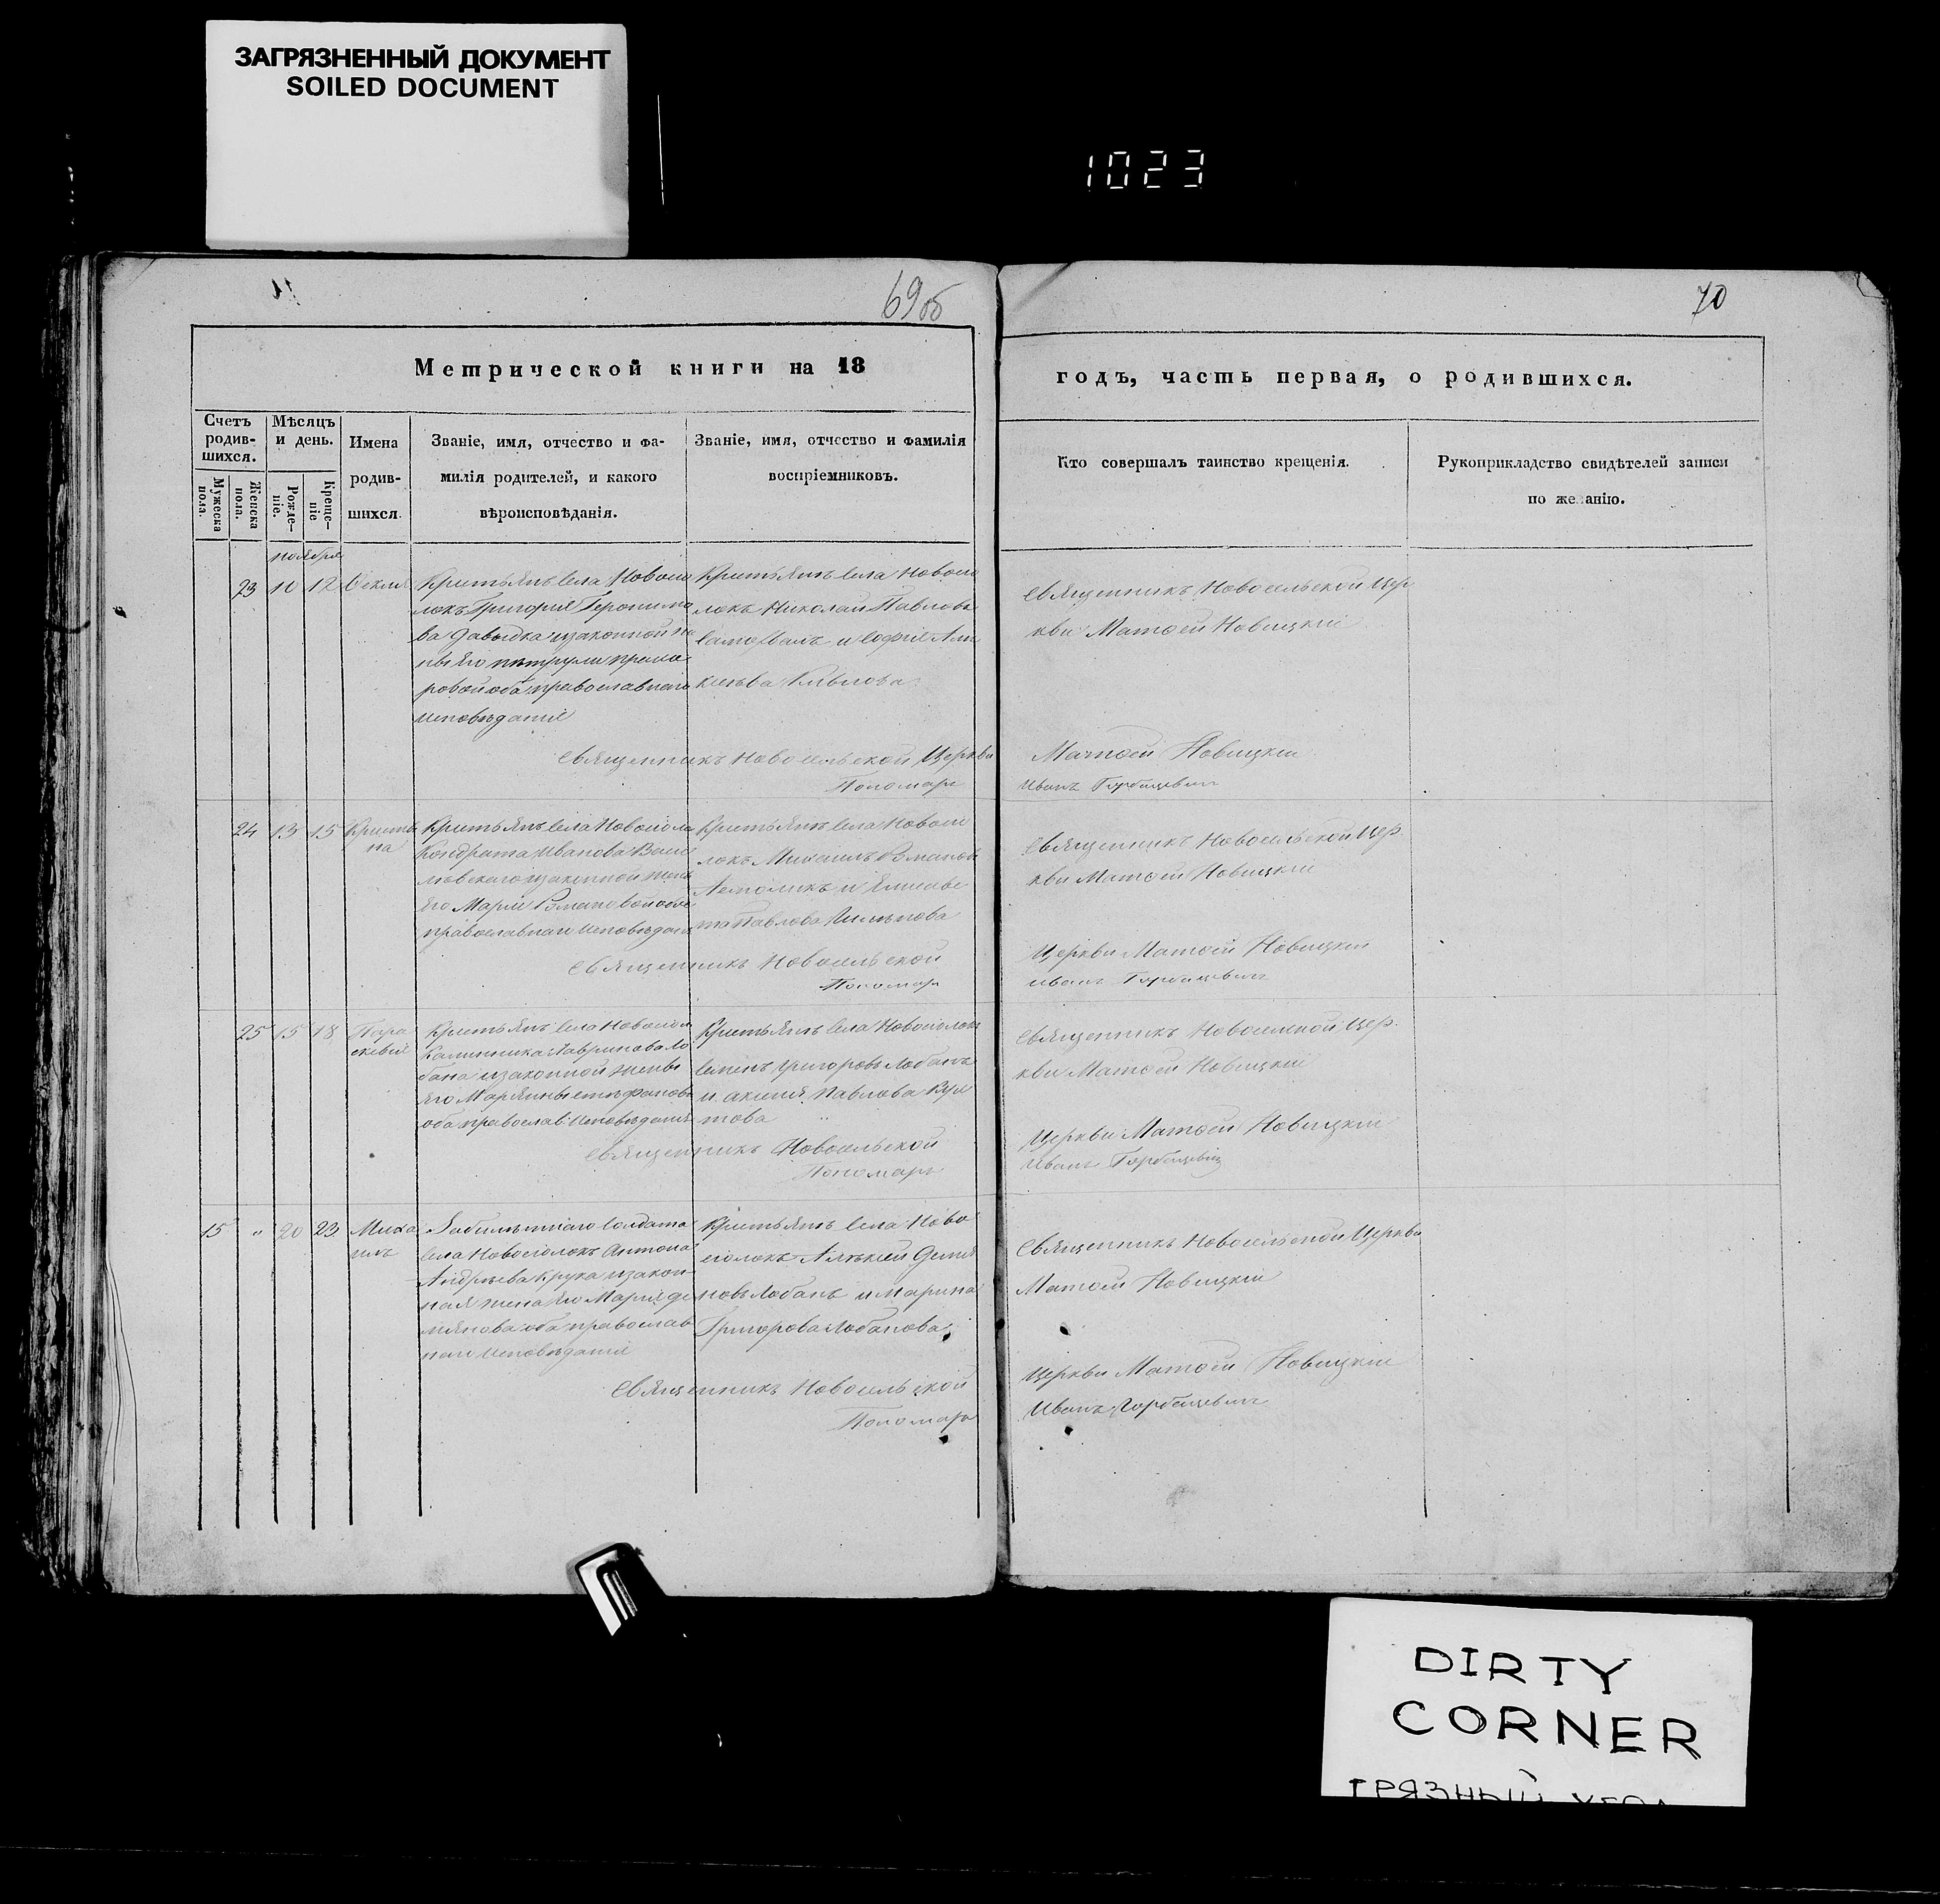 ЗАГРЯЗНЕННЫЙ ДОКУМЕНТ
SOILED DOCUMENT
1023
69об
70
Метрической книги на 18
годъ, часть первая, о родившихся.
Счетъ родив-шихся.
Мѣсяцъ и день.
Имена родив-шихся.
Званіе, имя, отчество и фа-
милія родителей, и какого
вѣроисповѣданія.
Званіе, имя, отчество и фамилія
воспріемниковъ.
Кто совершалъ таинство крещенія.
Рукоприкладство свидѣтелей записи
по желанію.
Мужеска пола.
Женска пола.
Рожде-ніе.
Креще-ніе
ноября
23 10 12 Ѳекля
Крестьянъ села Новосіо
локъ Григорія Геронимо
ва Давыдка изаконной же
ны его
ровой оба православнаго
исповѣданія
Крестьянъ села Новосіо
локъ Николай Павловъ
и Софія
Священникъ Новосельской Цер
кви Матѳей Новицкій
Священникъ Новосельской Церкви Матѳей Новицкій
Пономарь Иванъ Горбацевич
24 13 15 Кристи
на
Крестьянъ села Новосіоло
Кондрата Иванова Васи
левскаго изаконной жены
его Маріи Романовой оба
православнаго исповѣданія
Крестьянъ села Новосіо
локъ Михаилъ Романов
и Елисаве
та Павлова
Священникъ Новосельской Цер
кви Матѳей Новицкій
Священникъ Новосельской Церкви Матѳей Новицкій
Пономарь Иванъ Горбацевич
25 15 18 Пара
скевія
Крестьянъ села Новосіол
Калинника Лавринова Ло
бана изаконной жены
его Маріянны Стефанов
оба православ исповѣданія
Крестьянъ села Новосіолок
Семенъ Григоровъ Лобанъ
и Аксинія Павлова
Священникъ Новоселской Цер.
кви Матѳей Новицкій
Священникъ Новосельской Церкви Матѳей Новицкій
Пономарь Иванъ Горбацевич
15 " 20 23 Миха
илъ
Забилетнаго солдата
села Новосіолокъ Антона
Андреева Крука изакон
ная жена его Марія Де
міянова оба православ
наго исповѣданія
Крестьянъ села Ново
сіолокъ Алексей Демія
новъ Лобанъ и Марина
Григорова Лобанова
Священникъ Новосельской Церкви
Матѳей Новицкій
Священникъ Новосельской Церкви Матѳей Новицкій
Пономарь Иванъ Горбацевич
DIRTY
CORNER
ГРЯЗНЫЙ УГОЛ